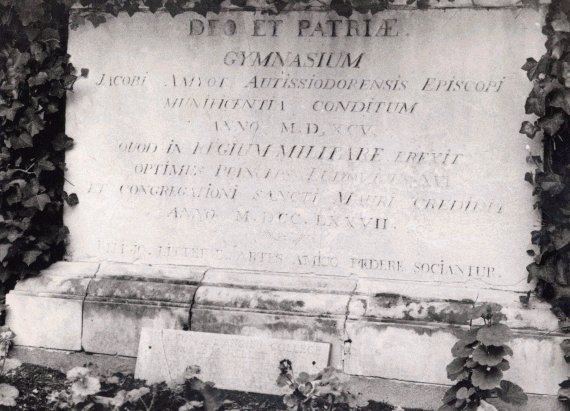 DEO ET PATRIÆ.
GYMNASIUM
JACOBI AMYOT AUTISSIODORENSIS EPISCOPI
MUNIFICENTIA CONDITUM
ANNO M.D.XCV.
QUOD IN REGIUM MILITARE EREXIT
OPTIMUS PRINCEPS LUDOVICUS XVI
ET CONGREGATIONI SANCTI MAURI CREDIDIT
ANNO M.DCC.LXXVII.
ARTES AMICO FŒDERE SOCIANTUR.